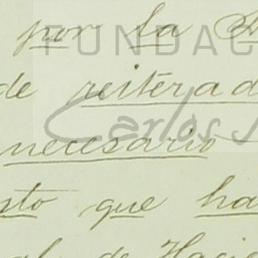 por la
FUNDAC
de reiterad
Carlos
necesario
sto que ha
de Haci